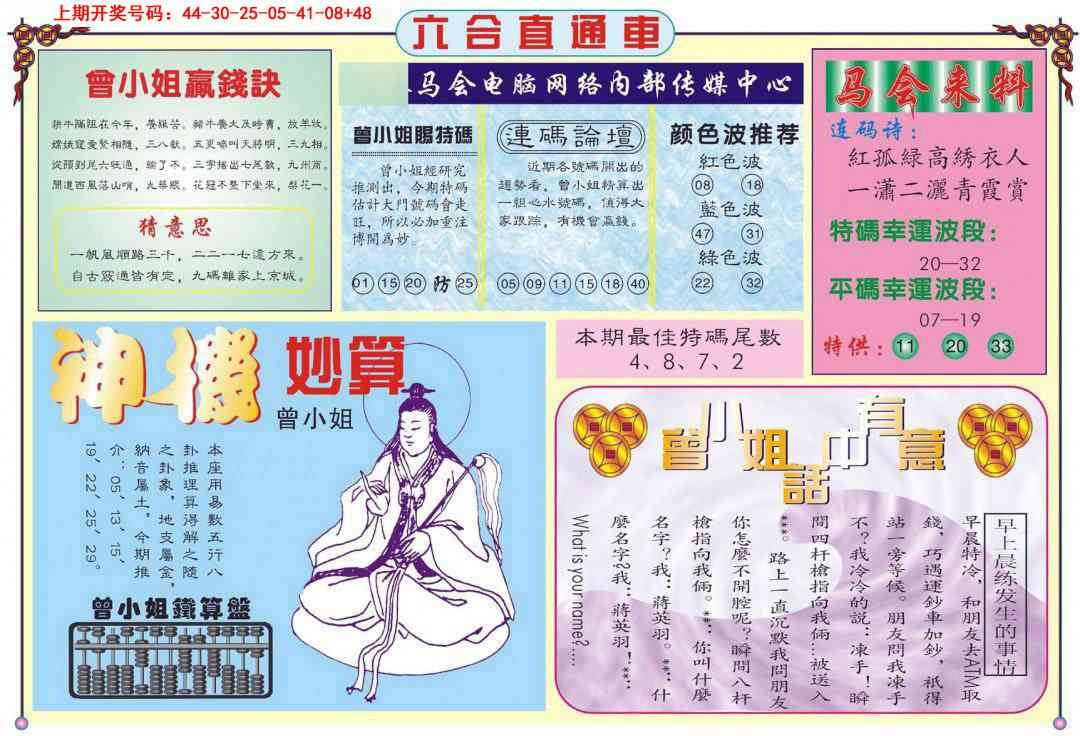 上期开奖号码：44-30-25-05-41-08+48
六合直通車
曾小姐贏錢訣
五更啼叫天將明，三九相。
猜意思
一帆風順路三千，二二一七遠方來。
自古窮通皆有定，九碼離家上京城。
马会电脑网络内部传媒中心
曾小姐賜特碼
曾小姐經研究
推測出，今期特碼
估計大門號碼會走
旺，所以必加重注
博開爲妙。
01 15 20 防 25
連碼論壇
近期各號碼開出的
趨勢看，曾小姐精算出
一組心水號碼，值得大
家跟踪，有機會贏錢。
05 09 11 15 18 40
颜色波推荐
紅色波
08 18
藍色波
47 31
綠色波
22 32
马会来料
连码诗：
紅孤緑高綉衣人
一瀟二灑青霞賞
特碼幸運波段：
20—32
平碼幸運波段：
07—19
特供：11 20 33
本期最佳特碼尾數
4、8、7、2
神機妙算
曾小姐
本座用易數五行八
卦推理算得解之隨
之卦象，地支屬金，
納音屬土，今期推
介：05、13、15、
19、22、25、29。
曾小姐鐵算盤
曾小姐話中有意
早上晨练发生的事情
早晨特冷，和朋友去ATM取
錢，巧遇運鈔車加鈔，祇得
站一旁等候。朋友問我凍手
不？我冷冷的説：凍手！瞬
間四杆槍指向我倆…被送入
***。
路上一直沉默我問朋友
你怎麽不開腔呢？瞬間八杆
槍指向我倆。**：你叫什麽
名字？我：蔣英羽。**：什
麽名字？我：蔣英羽！**：
What is your name?....